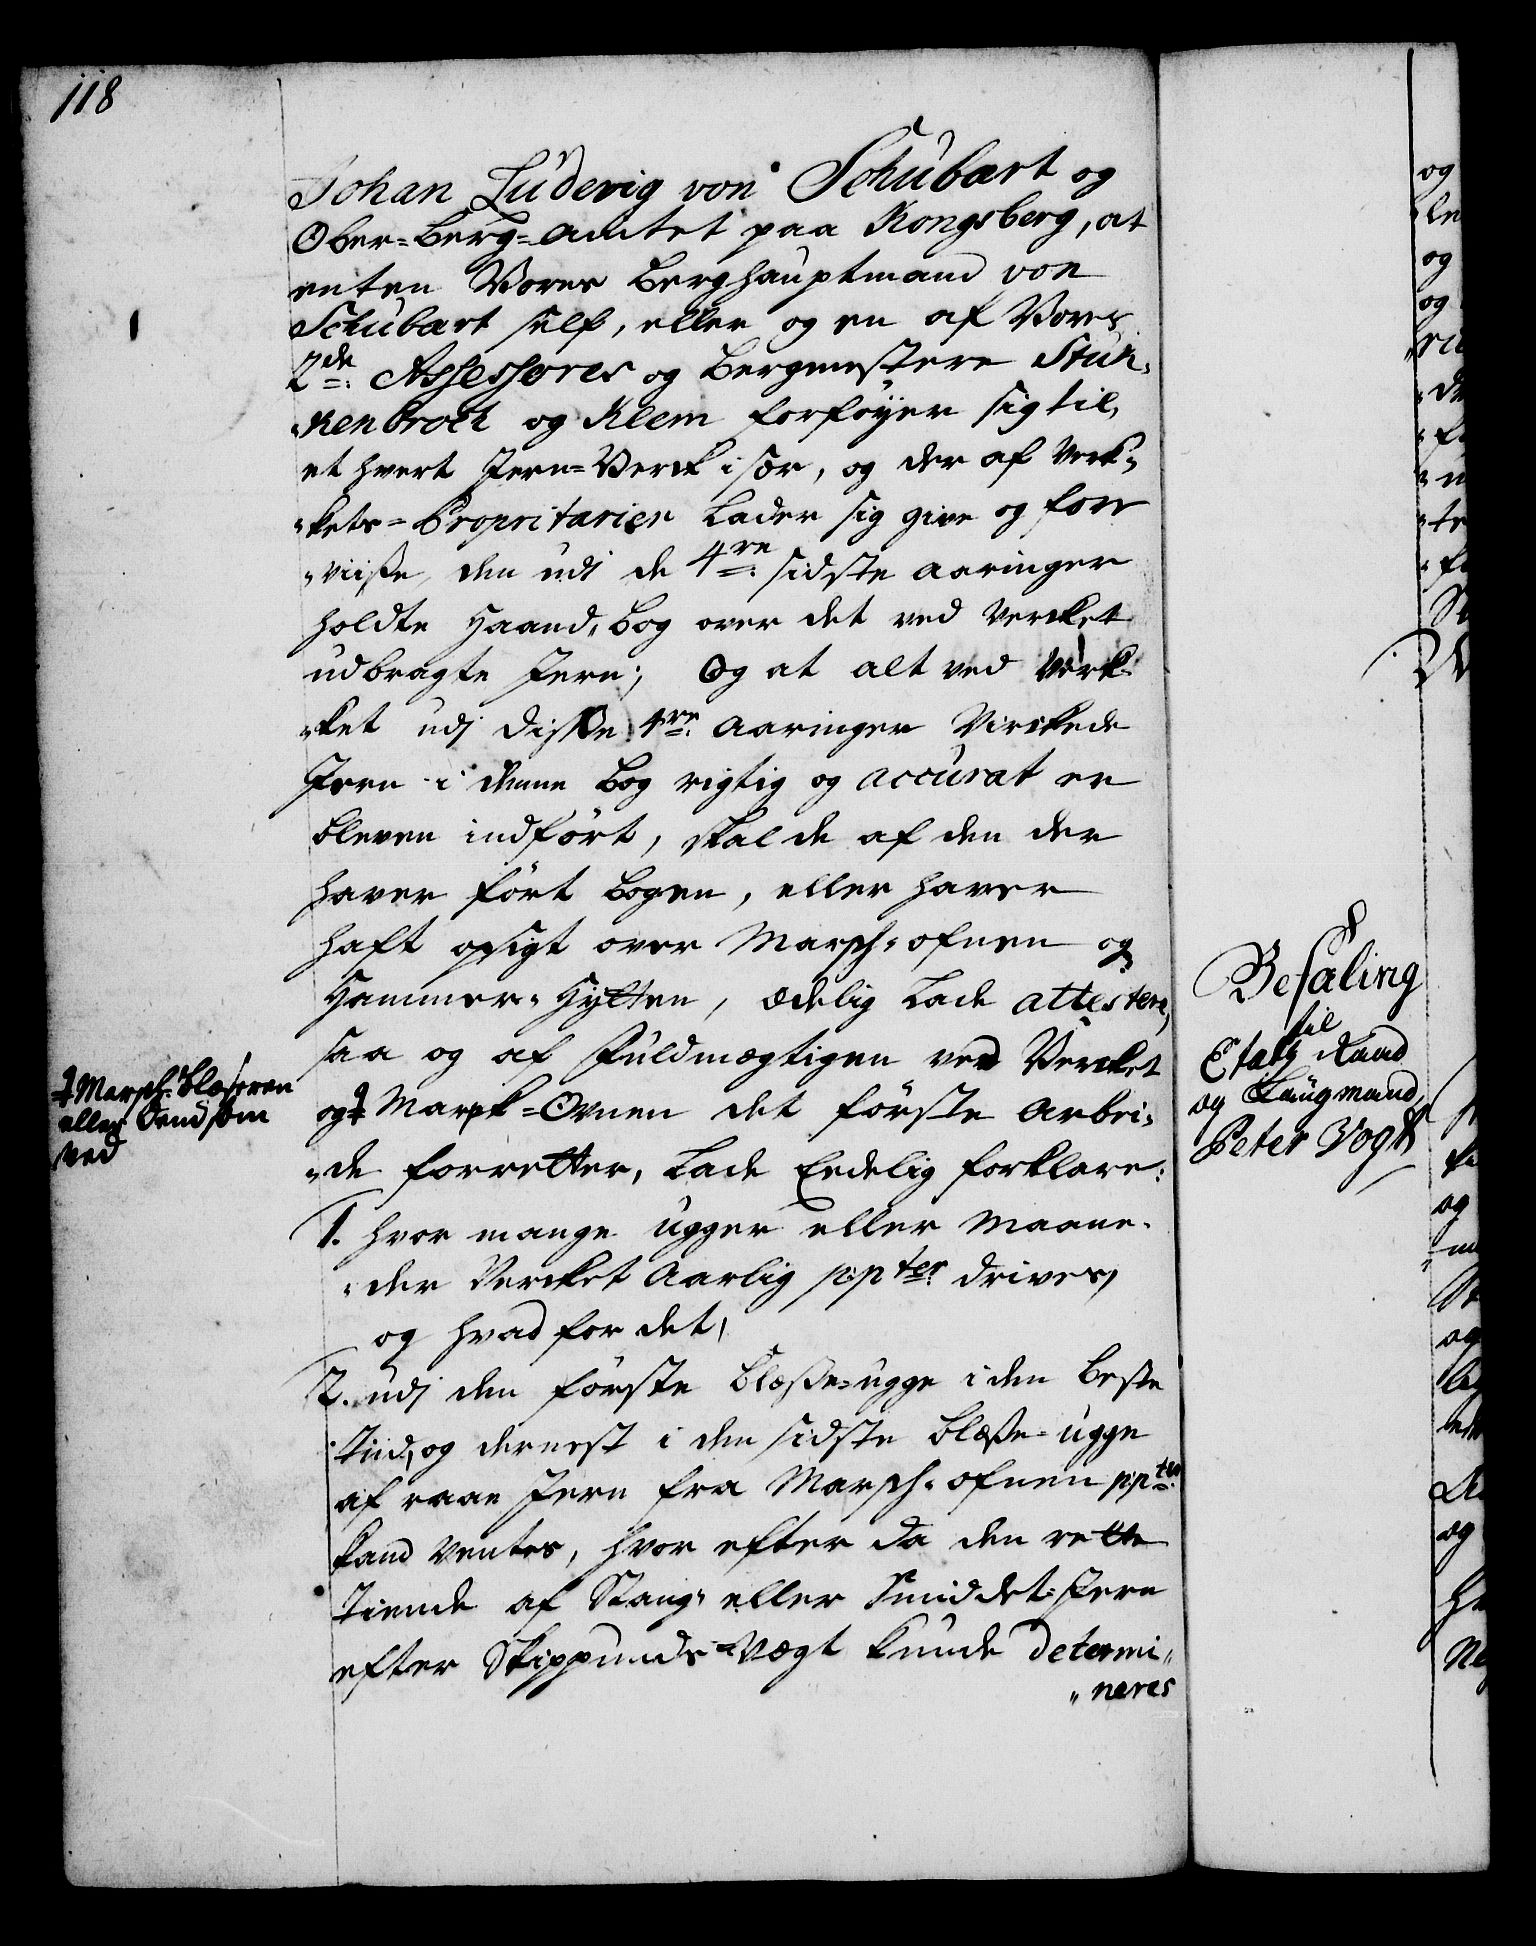 118
Johan Ludevig von Schubart og
Ober=Berg=Amtet paa Kongsberg, at
enten Vores Berghauptmand von
Schubart self, eller og en af Vores
2de Assessores og Bergmestere Stuk„
„kenbrock og Klem forføyer sig til
et hvert Jern=Verck især, og der af Verk„
„kets=Propritarier Lader sig give og fore
„viiße den udj de 4re sidste aaringer
holdte Haand„Bog over det ved Vercket
udbragte Jern; Og at alt ved Verk„
„ket udj disße 4re Aaringer Virckede
Jern i denne Bog rigtig og accurat er
bleven indført, skal de af den der
haver ført Bogen, eller haver
haft opsigt over Marsch„ofnen og
Hammer„Hytten, Ædelig Lade attestere,
saa og af Fuldmægtigen ved Vercket
og ‡ Mark=Ovnen det første Arbei„
„de forretter, Lade Eedelig forklare:
‡ Marsch„Blæseren
eller dend som
ved
1. hvor mange ugger eller Maane„
„der Vercket Aarlig p:pter drives,
og hvad for det,
2. udj den første Blæße=ugge i den beste
Tiid, og dernest i den sidste Blæße=ugge
af raae Jern fra Marsch„ofnen p:pter
kand ventes, hvor efter da den rette
Tiende af Stang„ eller Smiddet=Jern
efter Skippunds=Vægt kunde determi„
„neres
Befaling
til
Etatz Raad
og Laugmand
Peter Vogt
og
og
og
og
og
og